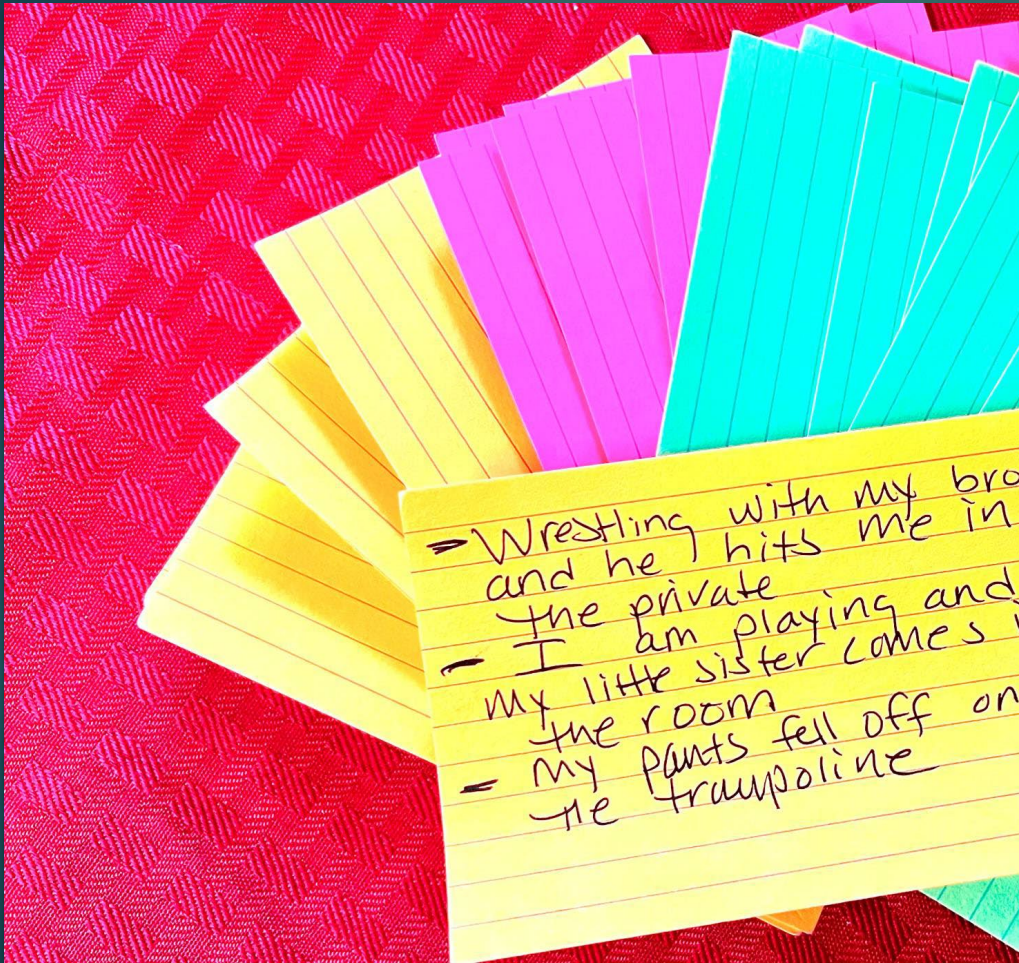 - Wrestling with my bro
and he hits me in
the private
- I am playing and
my little sister comes
the room
- my pants fell off on
the trampoline